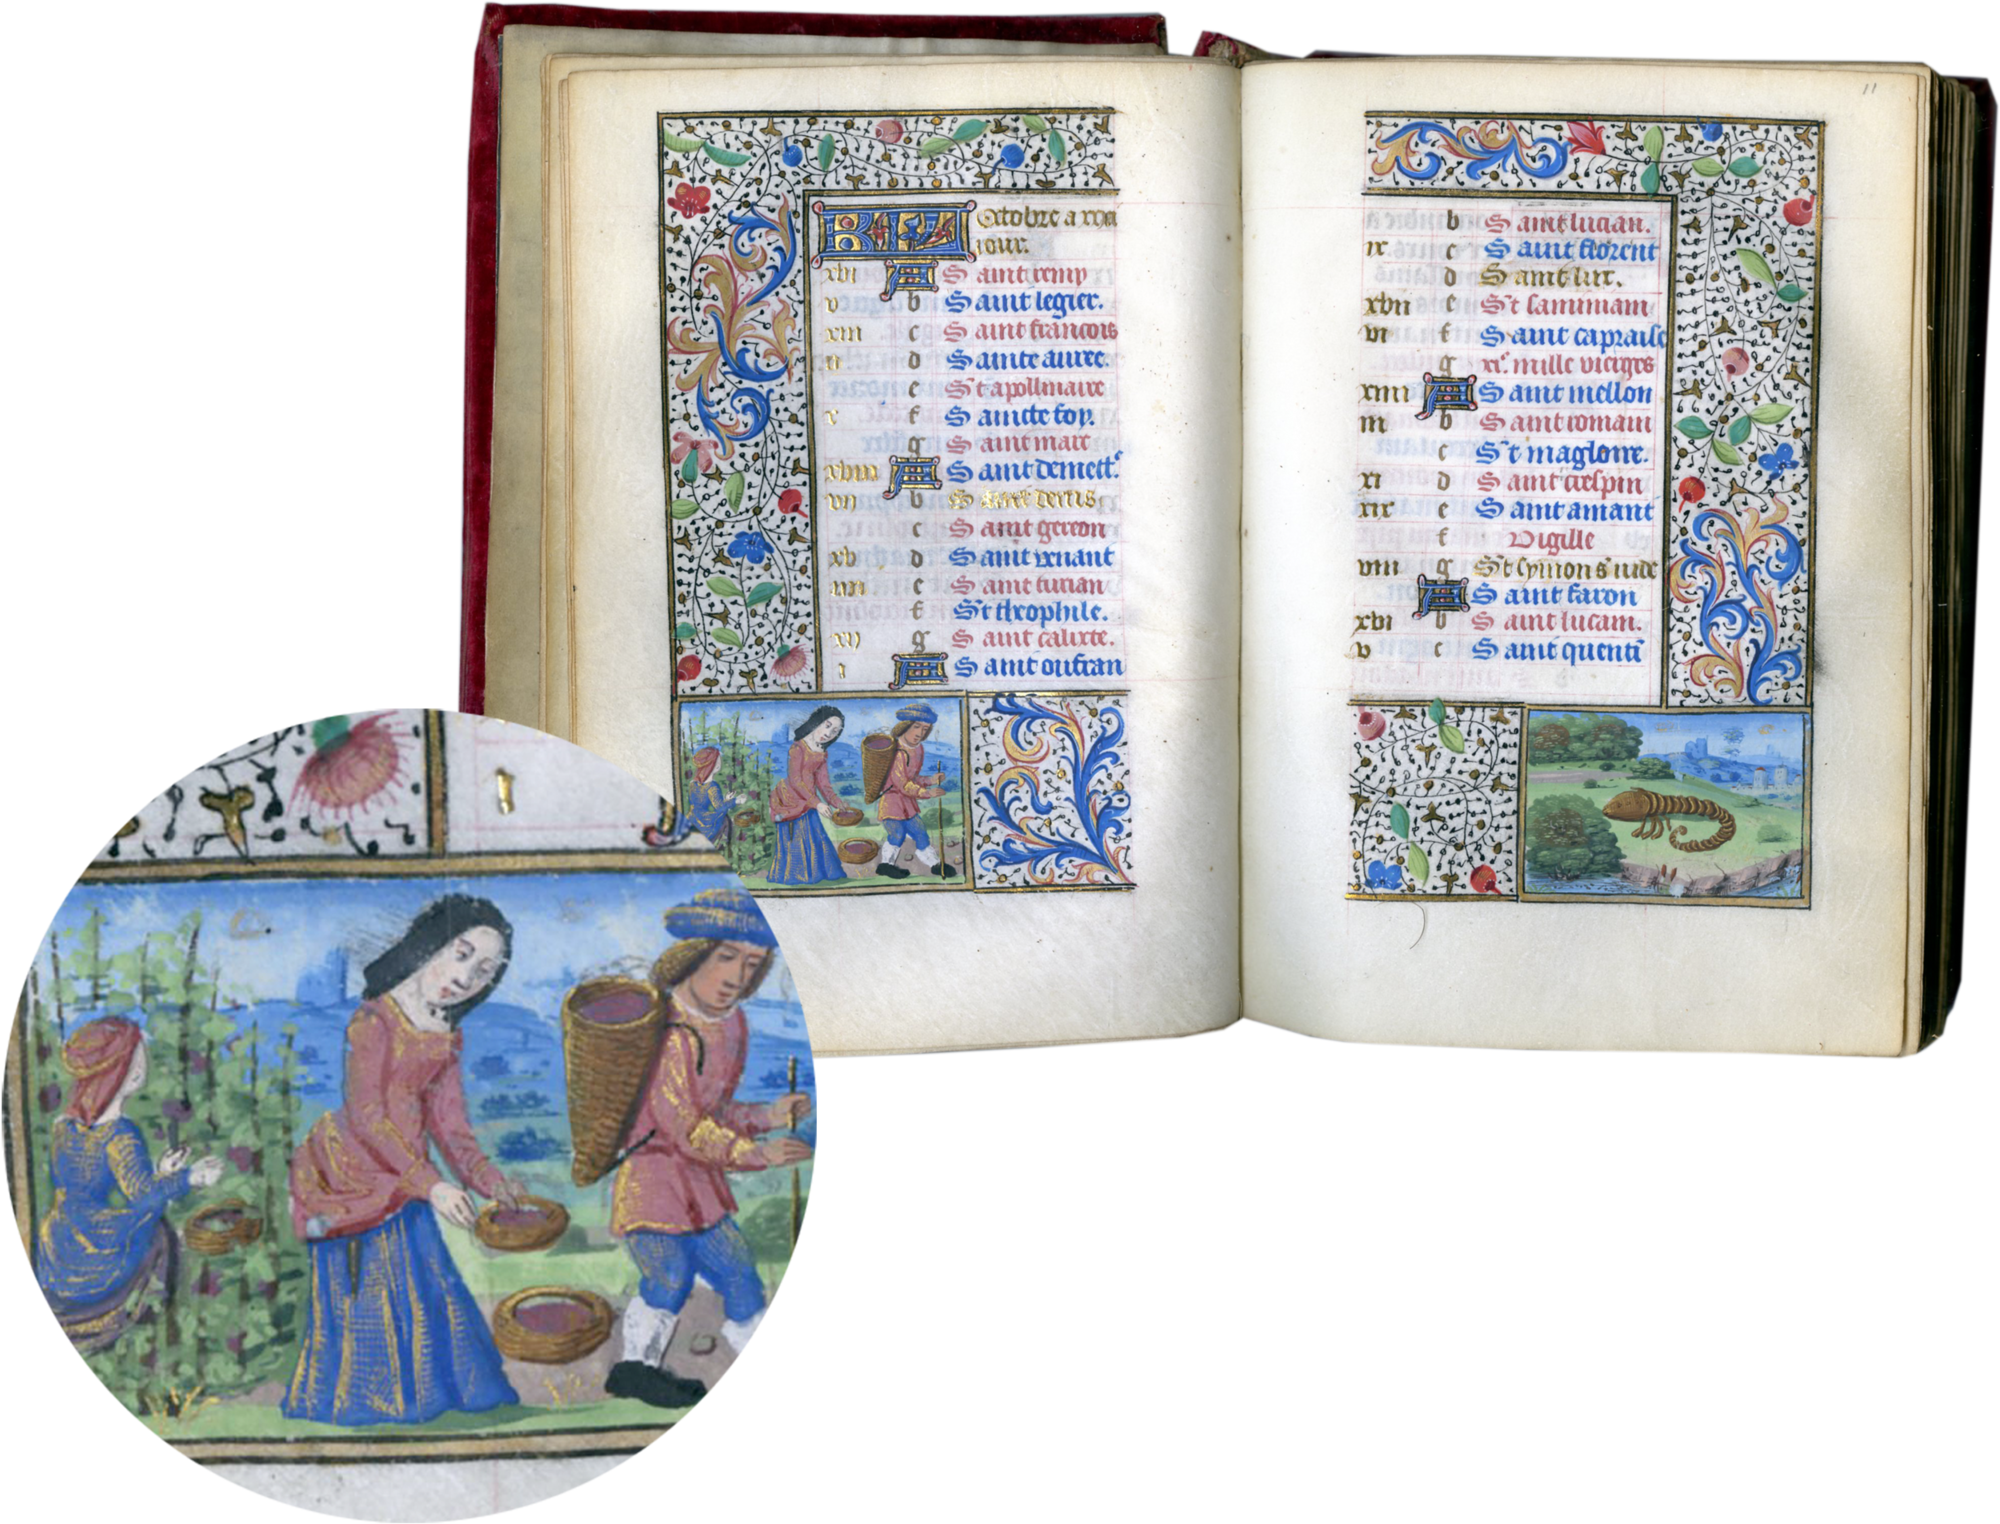 KL Octobre a xxxi
iour.
xvi A Saint remy
v b Saint legier.
xiii c Saint francois
ii d Sainte auree.
e St apolinaire
x f Saincte foy.
g Saint marc
xviii A Saint demett
vii b Saint denis
c Saint gereon
xv d Saint venant
iiii e Saint lucian
f St theophile.
xii g Saint calixte.
i A Saint oufran
11
b Saint lucian.
ix. c Saint florent
d Saint luc.
xvii e St saviniain
vi f Saint capraise
g xi. mille vierges
xiiii A Saint mellon
iii b Saint romain
c St magloire.
xi d Saint crespin
xix e Saint amant
f Vigille
viii g St symon s iude
A Saint faron
xvi b Saint lucain.
v c Saint quenti